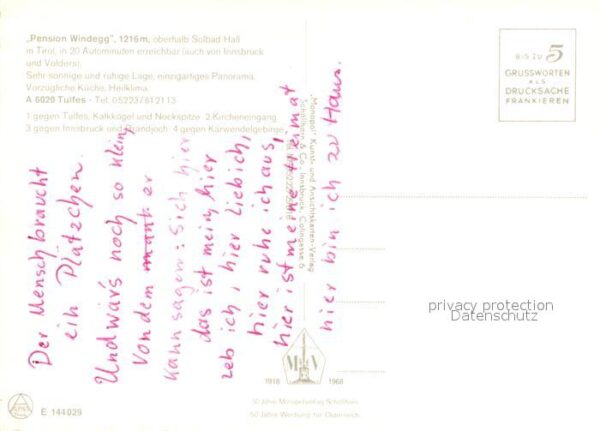 „Pension Windegg", 1216m, oberhalb Solbad Hall
in Tirol, in 20 Autominuten erreichbar (auch von Innsbruck
und Volders).
Sehr sonnige und ruhige Lage, einzigartiges Panorama.
Vorzügliche Küche, Heilklima.
A 6020 Tulfes - Tel. 05223/812113
1 gegen Tulfes, Kalkkögel und Nockspitze 2 Kircheneingang
3 gegen Innsbruck und Brandjoch 4 gegen Karwendelgebirge
BIS ZU 5
GRUSSWORTEN
ALS
DRUCKSACHE
FRANKIEREN
Der Mensch braucht
ein Plätzchen.
Und wär's noch so klein,
Von dem er
kann sagen: Sich hier
das ist mein hier
leb ich, hier lieb ich,
hier ruhe ich aus,
hier ist meine Heimat
hier bin ich zu Haus.
"Monopol" Kunst- und Ansichtskarten-Verlag
Schöllhorn & Co., Innsbruck, Colingasse 6
privacy protection
Datenschutz
1918 1968
50 Jahre Monopolverlag Schöllhorn
50 Jahre Werbung für Österreich
E 144029